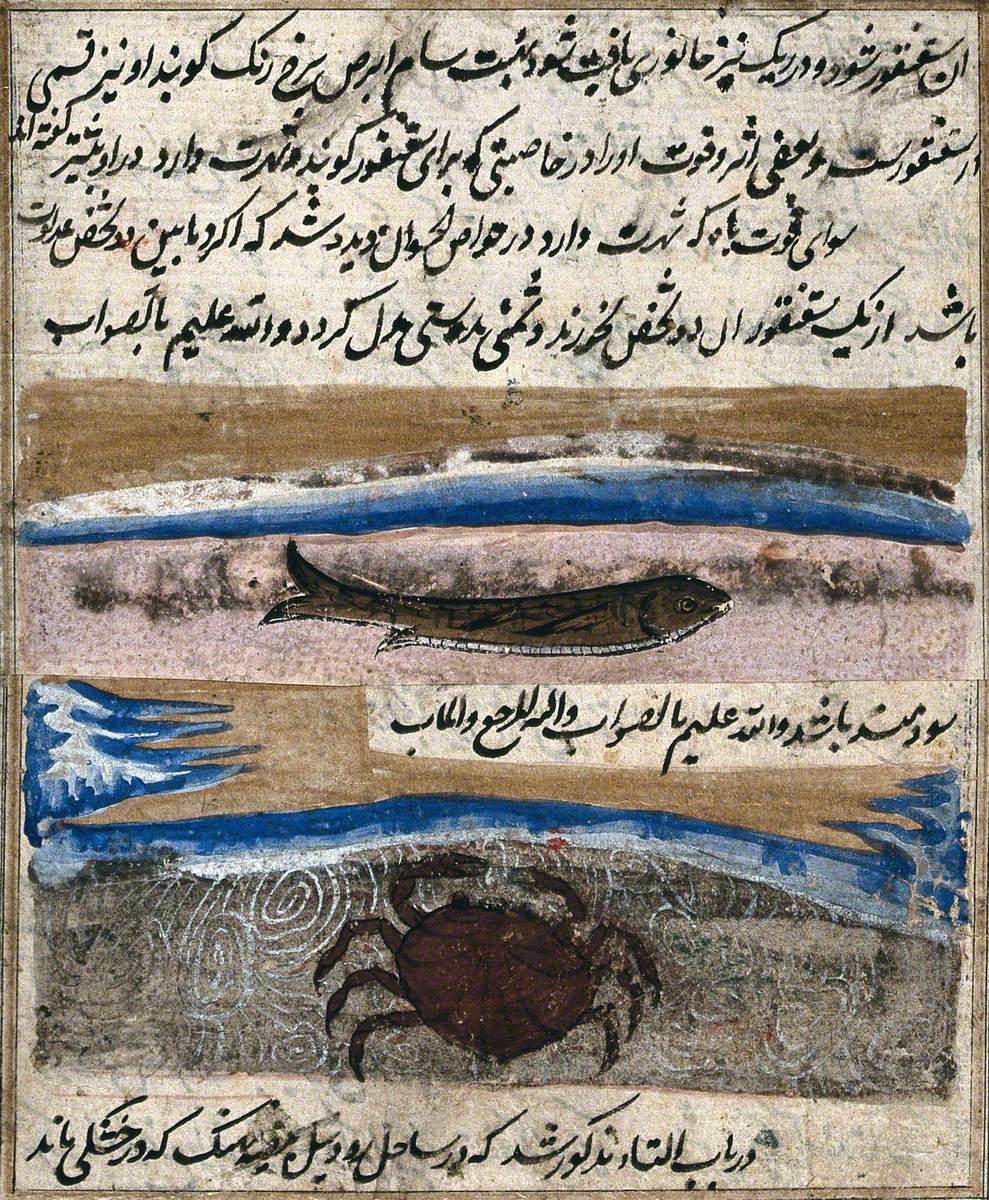 آن سقنقور شود و در ریک نیز جانوری یافت شود بهیئت سام ابرص سرخ رنک کویند او نیز قسمی
از سقنقورست و بعضی اثر و قوت او را در خاصیتی که برای سقنقور کویند و شهرت دارد در او بیشتر گفته‌اند
سوای قوت باه که شهرت دارد در خواص الحیوان دیده شد که اکر مابین دو شخص عداوت
باشد از یک سقنقور آن دو شخص بخورند دشمنی بدوستی بدل کردد والله علیم بالصواب
سودمند باشد والله علیم بالصواب والیه المرجع والمآب
در باب التاء مذکور شد که در ساحل رود نیل بیضه نهنک که در خشکی ماند